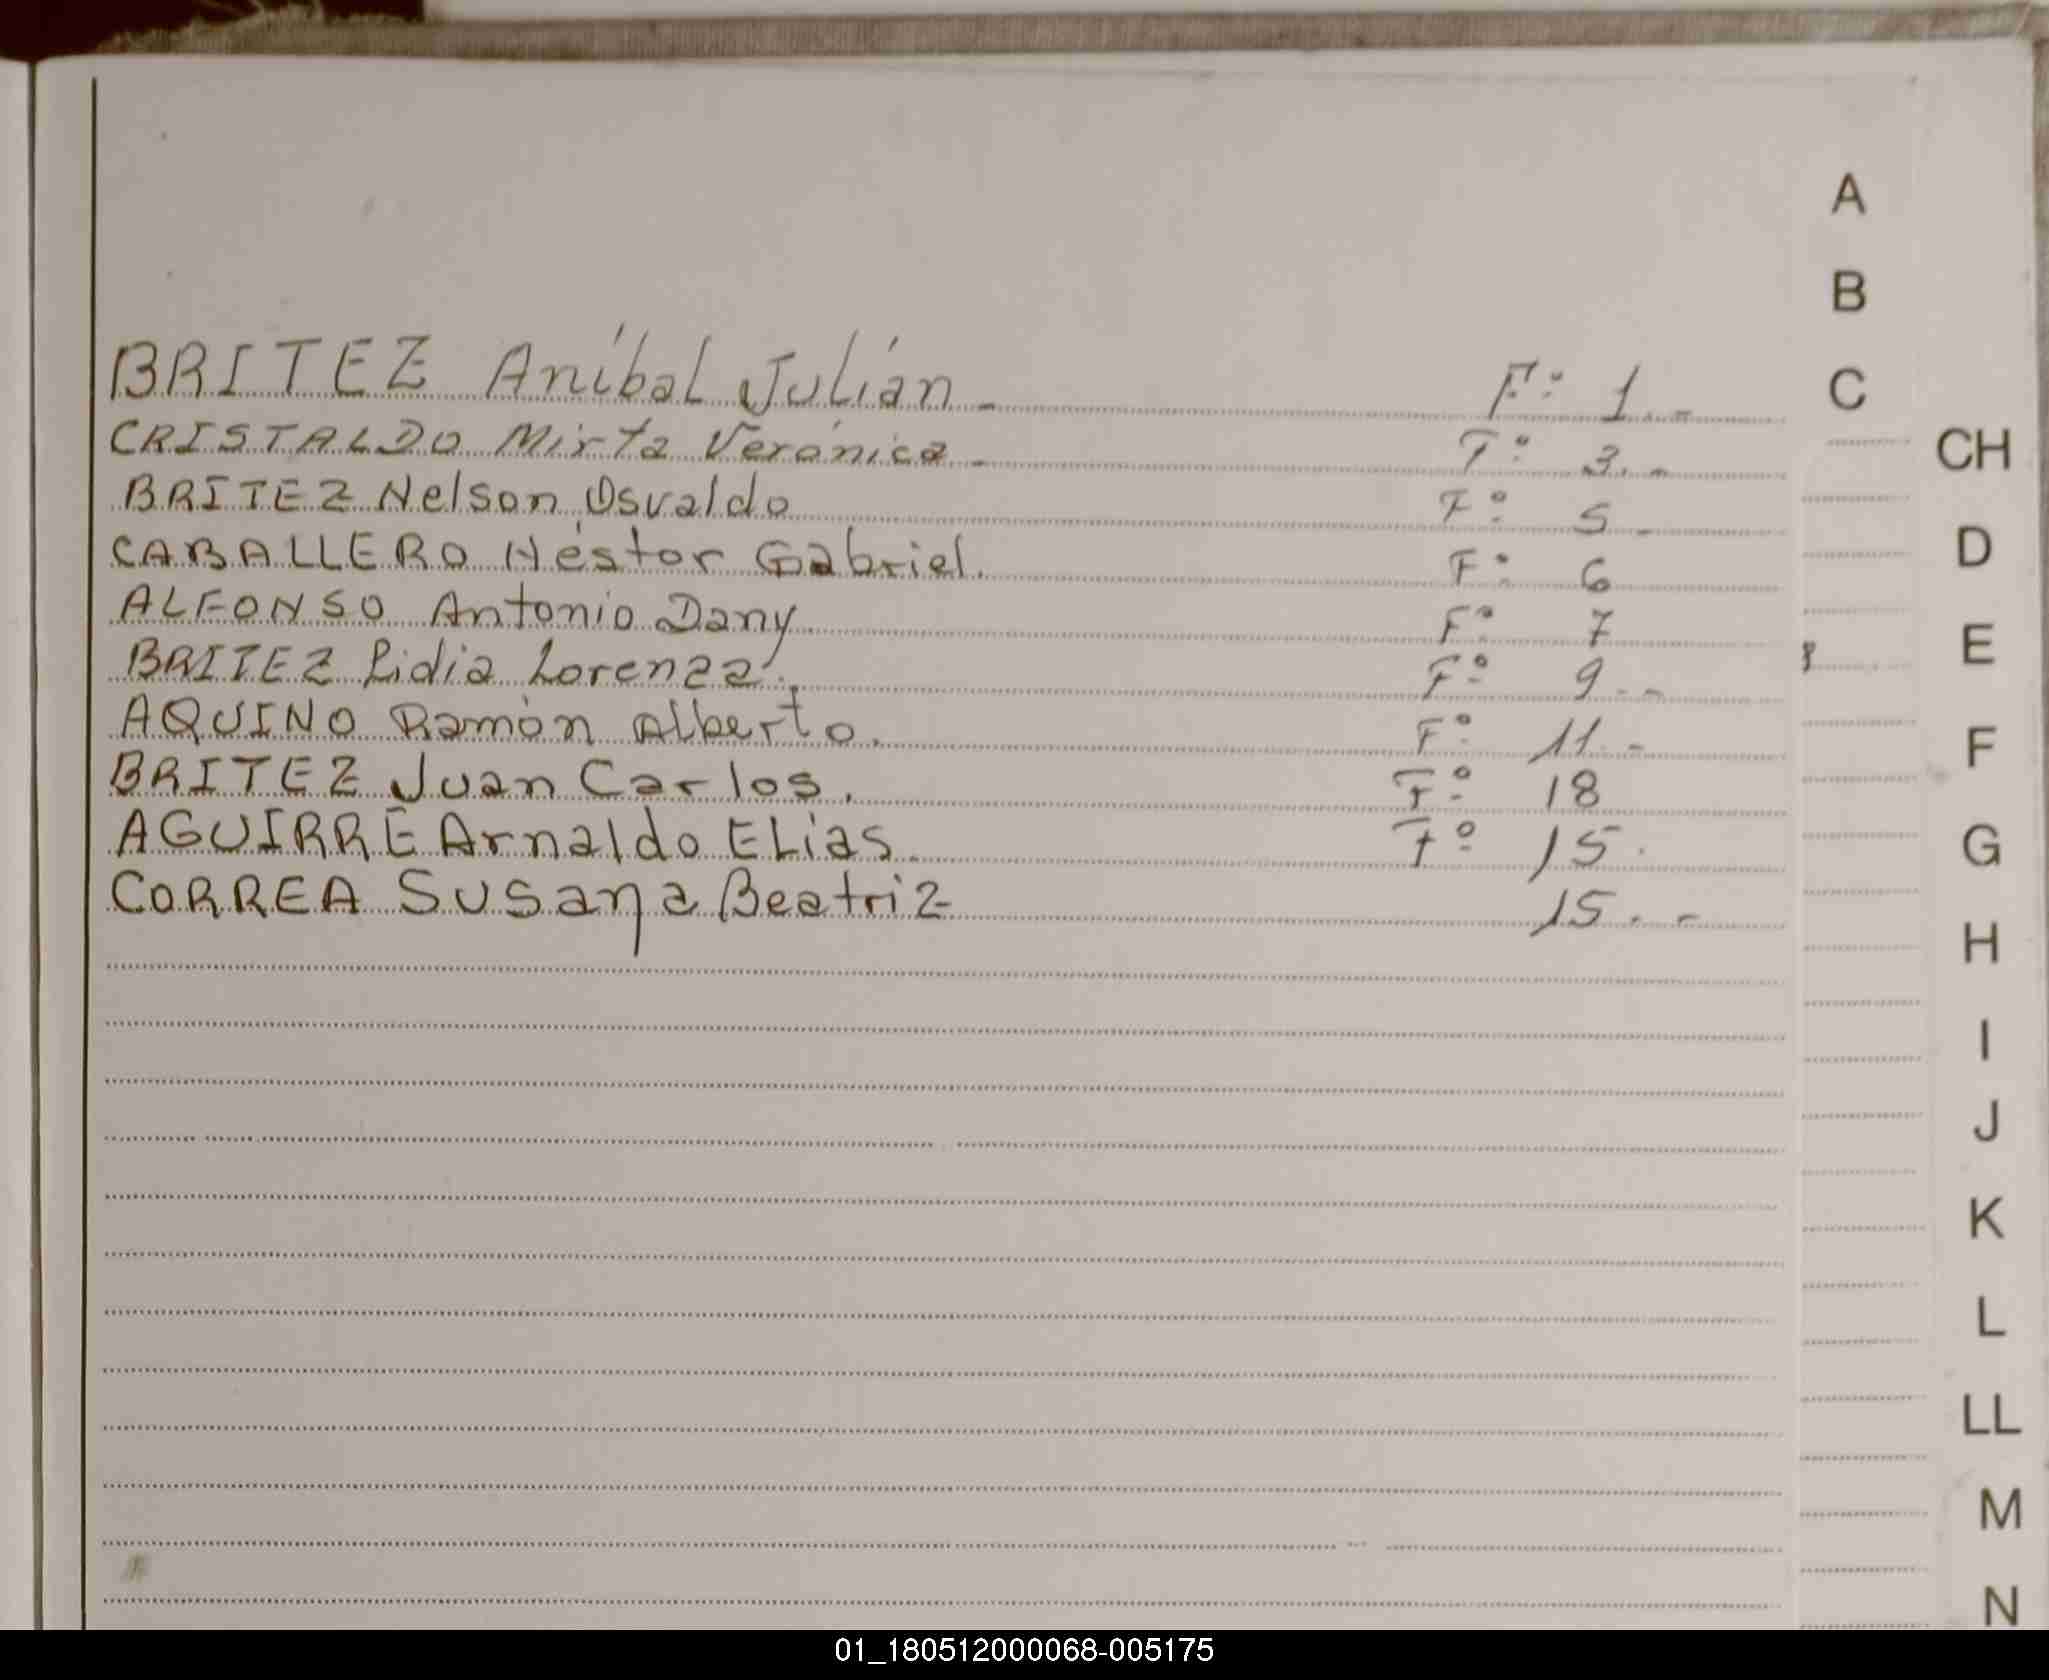 BRITEZ Aníbal Julián - F:º 1.-
CRISTALDO Mirta Verónica - Fº 3.-
BRITEZ Nelson Osvaldo Fº 5.-
CABALLERO Héstor Gabriel. Fº 6
ALFONSO Antonio Dany Fº 7
BRITEZ Lidia Lorenza. Fº 9.-
AQUINO Ramón Alberto. Fº 11.-
BRITEZ Juan Carlos. Fº 18
AGUIRRE Arnaldo ELias. Fº 15.
CORREA Susana Beatriz 15.-
A
B
C
CH
D
E
F
G
H
I
J
K
L
LL
M
N
01_180512000068-005175